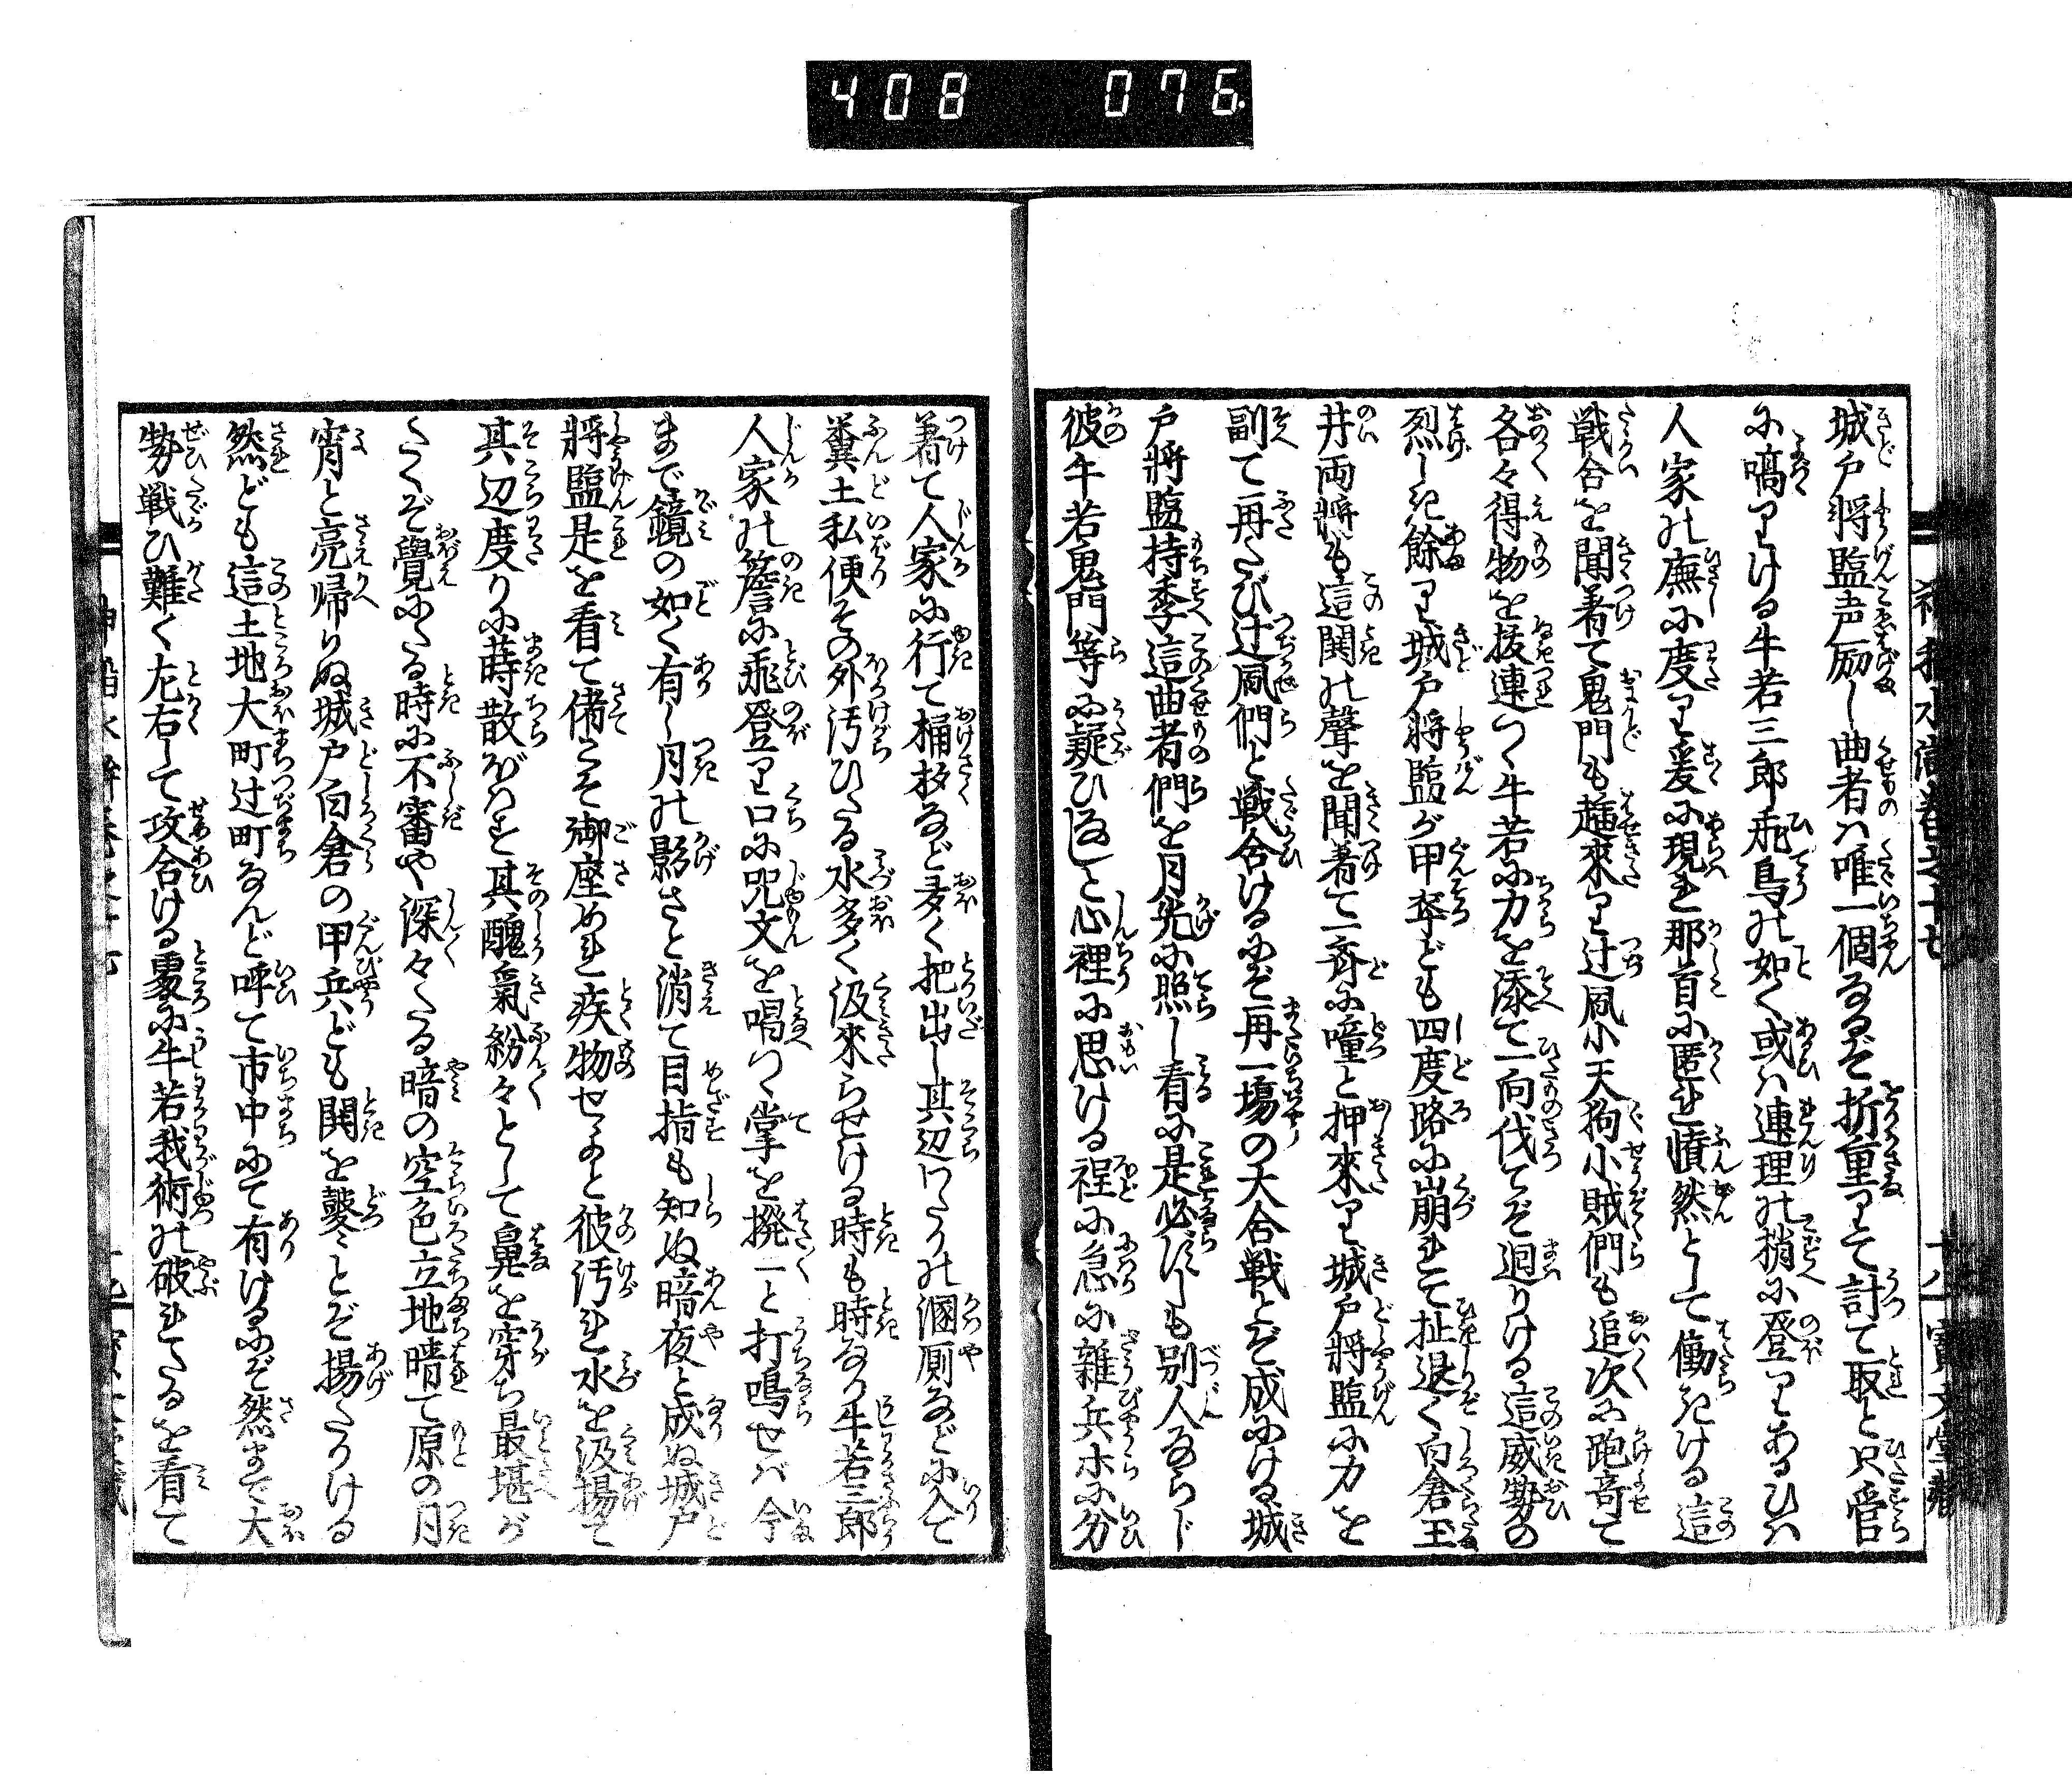 408 076
城戸将監声励し曲者ハ唯一個なるぞ折重りて討て取と只管
に嗃りける牛若三郎飛鳥の如く或ハ連理の梢に登りあるひハ
人家の廡に度り爰に現れ那首に匿れ憤然として働きける這
戦合を聞着て鬼門も趨來り辻風小天狗小賊們も追次に跑竒て
各々得物を抜連つゝ牛若に力を添て一向伐てぞ廻りける這威勢の
烈しき餘り城戸将監が甲卒ども四度路に崩れて扯退く白倉玉
井両将も這鬨の聲を聞着て一斉に噇と押來り城戸将監に力を
副て再たび辻風們と戦合けるにぞ再一場の大合戦とぞ成にける城
戸将監持季這曲者們を月光に照し看に是必ずしも別人ならじ
彼牛若鬼門等に疑ひなしと心裡に思ける程に急に雑兵ホに分
着て人家に行て桶杓など多く把出し其辺わたりの溷厠などに入て
糞土私便その外汚ひたる水多く汲來らせける時も時なり牛若三郎
人家の簷に飛登り口に咒文を唱つゝ掌を撥一と打鳴せバ今
まで鏡の如く有し月の影さと消て目指も知ぬ暗夜と成ぬ城戸
将監是を看て偖こそ御座めれ疾物せよと彼汚れ水を汲揚て
其辺度りに蒔散バすれバ其醜氣紛々として鼻を穿ち最堪が
たくぞ覺にたる時に不審や深々たる暗の空色立地晴て原の月
宵と亮帰りぬ城戸白倉の甲兵ども鬨を鼕とぞ揚たりける
然ども這土地大町辻町なんど呼て市中にて有けるにぞ然まで大
勢戦ひ難く左右して攻合ける處に牛若我術の破れたるを看て